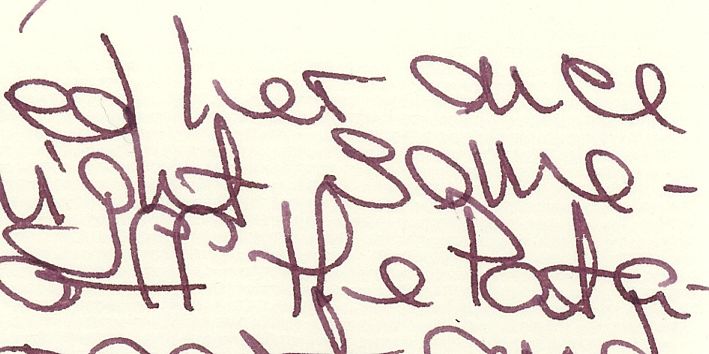 ed her once
ight some-
off the Pata-